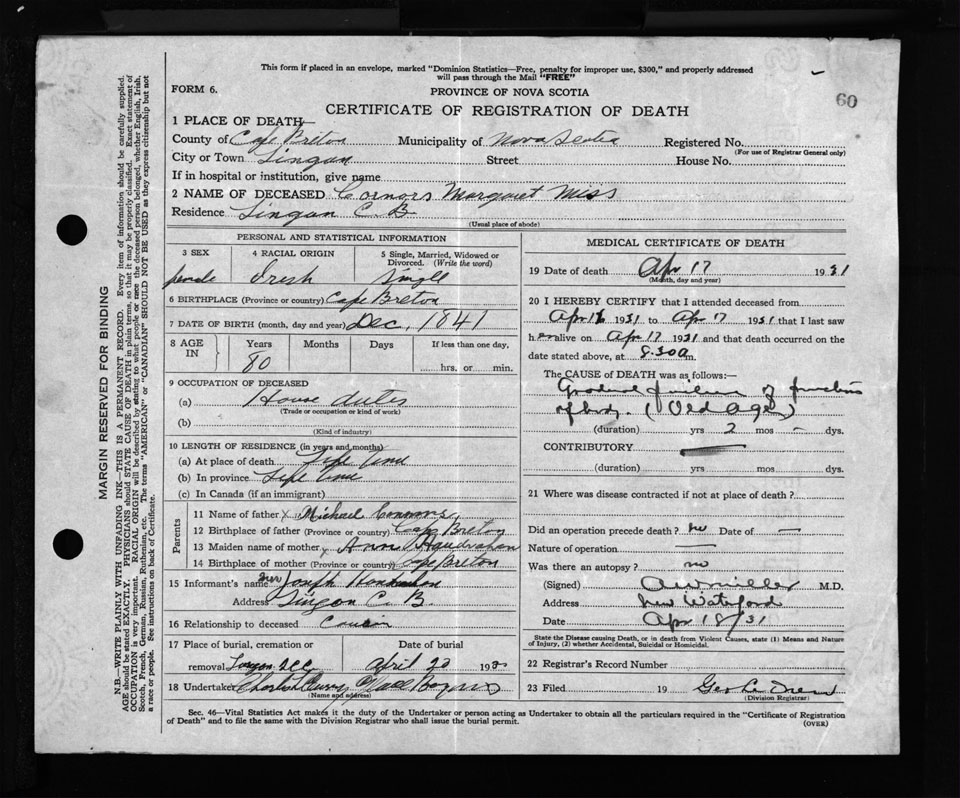 This form if placed in an envelope, marked "Dominion Statistics—Free, penalty for improper use, $300," and properly addressed
will pass through the Mail "FREE"
FORM 6.
PROVINCE OF NOVA SCOTIA
60
CERTIFICATE OF REGISTRATION OF DEATH
1 PLACE OF DEATH—
County of Cape Breton Municipality of Nova Scotia Registered No.
(For use of Registrar General only)
City or Town Lingan Street House No.
If in hospital or institution, give name
2 NAME OF DECEASED Connors Margaret Miss
Residence Lingan C. B.
(Usual place of abode)
PERSONAL AND STATISTICAL INFORMATION
3 SEX 4 RACIAL ORIGIN 5 Single, Married, Widowed or
Divorced. (Write the word)
female Iresh Single
6 BIRTHPLACE (Province or country) Cape Breton
7 DATE OF BIRTH (month, day and year) Dec, 1841
8 AGE IN Years Months Days If less than one day,
80 hrs. or min.
9 OCCUPATION OF DECEASED
(a) House duties
(Trade or occupation or kind of work)
(b)
(Kind of industry)
10 LENGTH OF RESIDENCE (in years and months)
(a) At place of death Life time
(b) In province Life time
(c) In Canada (if an immigrant)
Parents
11 Name of father x Michael Connors
12 Birthplace of father (Province or country) Cape Breton
13 Maiden name of mother x Ann
14 Birthplace of mother (Province or country) Cape Breton
15 Informant's name Joseph
Address Lingan C. B.
16 Relationship to deceased Cousin
17 Place of burial, cremation or Date of burial
removal Lingan April 20 192
18 Undertaker
(Name and address)
MEDICAL CERTIFICATE OF DEATH
19 Date of death Apr 17 1931
(Month, day and year)
20 I HEREBY CERTIFY that I attended deceased from
Apr 16 1931 to Apr 17 1931 that I last saw
her alive on Apr 17 1931 and that death occurred on the
date stated above, at 8.30 a m.
The CAUSE OF DEATH was as follows:—
Gradual failure of functions
of body. (Old Age)
(duration) yrs 2 mos - dys.
CONTRIBUTORY —
(duration) yrs mos dys.
21 Where was disease contracted if not at place of death?
Did an operation precede death? no Date of —
Nature of operation —
Was there an autopsy? no
(Signed) A W Miller M.D.
Address New Waterford
Date Apr 18/31
State the Disease causing Death, or in death from Violent Causes, state (1) Means and Nature
of Injury, (2) whether Accidental, Suicidal or Homicidal.
22 Registrar's Record Number
23 Filed 19
(Division Registrar)
Sec. 46—Vital Statistics Act makes it the duty of the Undertaker or person acting as Undertaker to obtain all the particulars required in the "Certificate of Registration
of Death" and to file the same with the Division Registrar who shall issue the burial permit.
(OVER)
MARGIN RESERVED FOR BINDING
N.B—WRITE PLAINLY WITH UNFADING INK—THIS IS A PERMANENT RECORD. Every item of information should be carefully supplied.
AGE should be stated EXACTLY. PHYSICIANS should STATE CAUSE OF DEATH in plain terms, so that it may be properly classified. Exact statement of
OCCUPATION is very important. RACIAL ORIGIN will be described by stating to what people or race the deceased person belonged, whether English, Irish,
Scotch, French, German, Russian, Ruthenian, etc. The terms "AMERICAN" or "CANADIAN" SHOULD NOT BE USED as they express citizenship but not
a race or people. See instructions on back of Certificate.